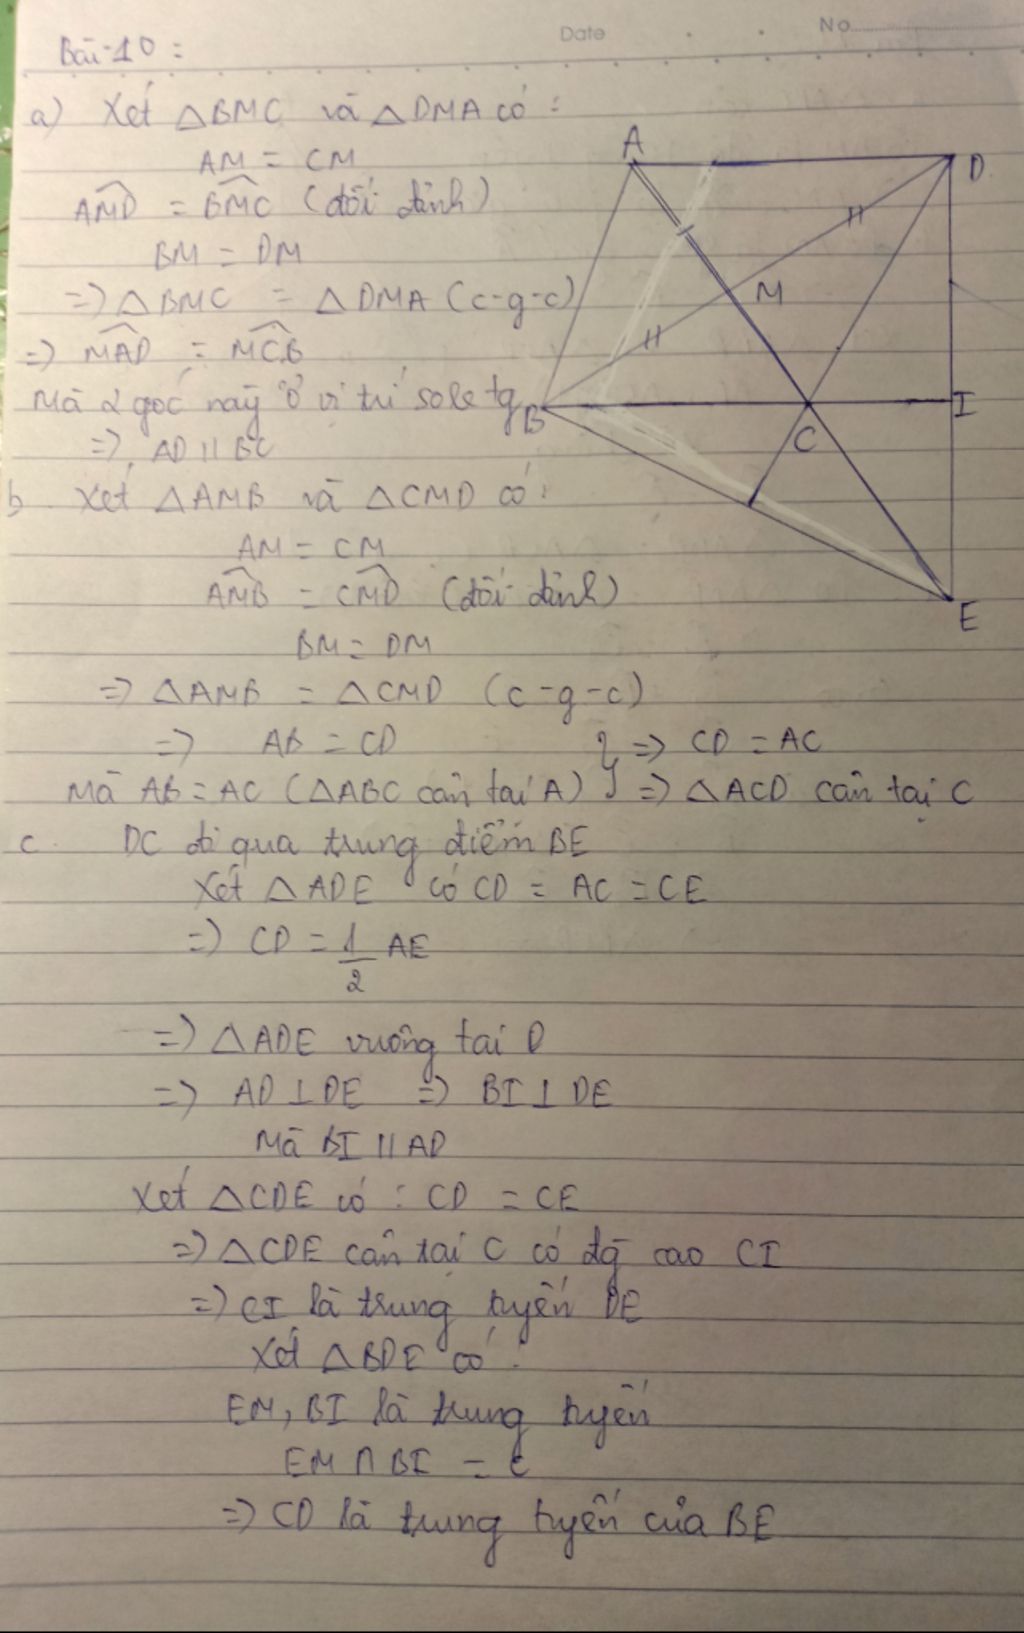 Date
No
Bài 10 :
a) Xét △BMC và △DMA có :
AM = CM
AMD = BMC (đối đỉnh)
BM = DM
=> △BMC = △DMA (c-g-c)
=> MAD = MCB
Mà 2 góc này ở vị trí sole tg
=> AD // BC
b. Xét △AMB và △CMD có :
AM = CM
AMB = CMD (đối đỉnh)
BM = DM
=> △AMB = △CMD (c-g-c)
=> AB = CD } => CD = AC
Mà AB = AC (△ABC cân tại A) } => △ACD cân tại C
c. DC đi qua trung điểm BE
Xét △ADE có CD = AC = CE
=> CD = 1/2 AE
=> △ADE vuông tại D
=> AD ⊥ DE => BI ⊥ DE
Mà BI // AD
Xét △CDE có : CD = CE
=> △CDE cân tại C có đg cao CI
=> CI là trung tuyến DE
Xét △BDE có :
EM, BI là trung tuyến
EM ∩ BI = C
=> CD là trung tuyến của BE
A
D
M
B
C
I
E